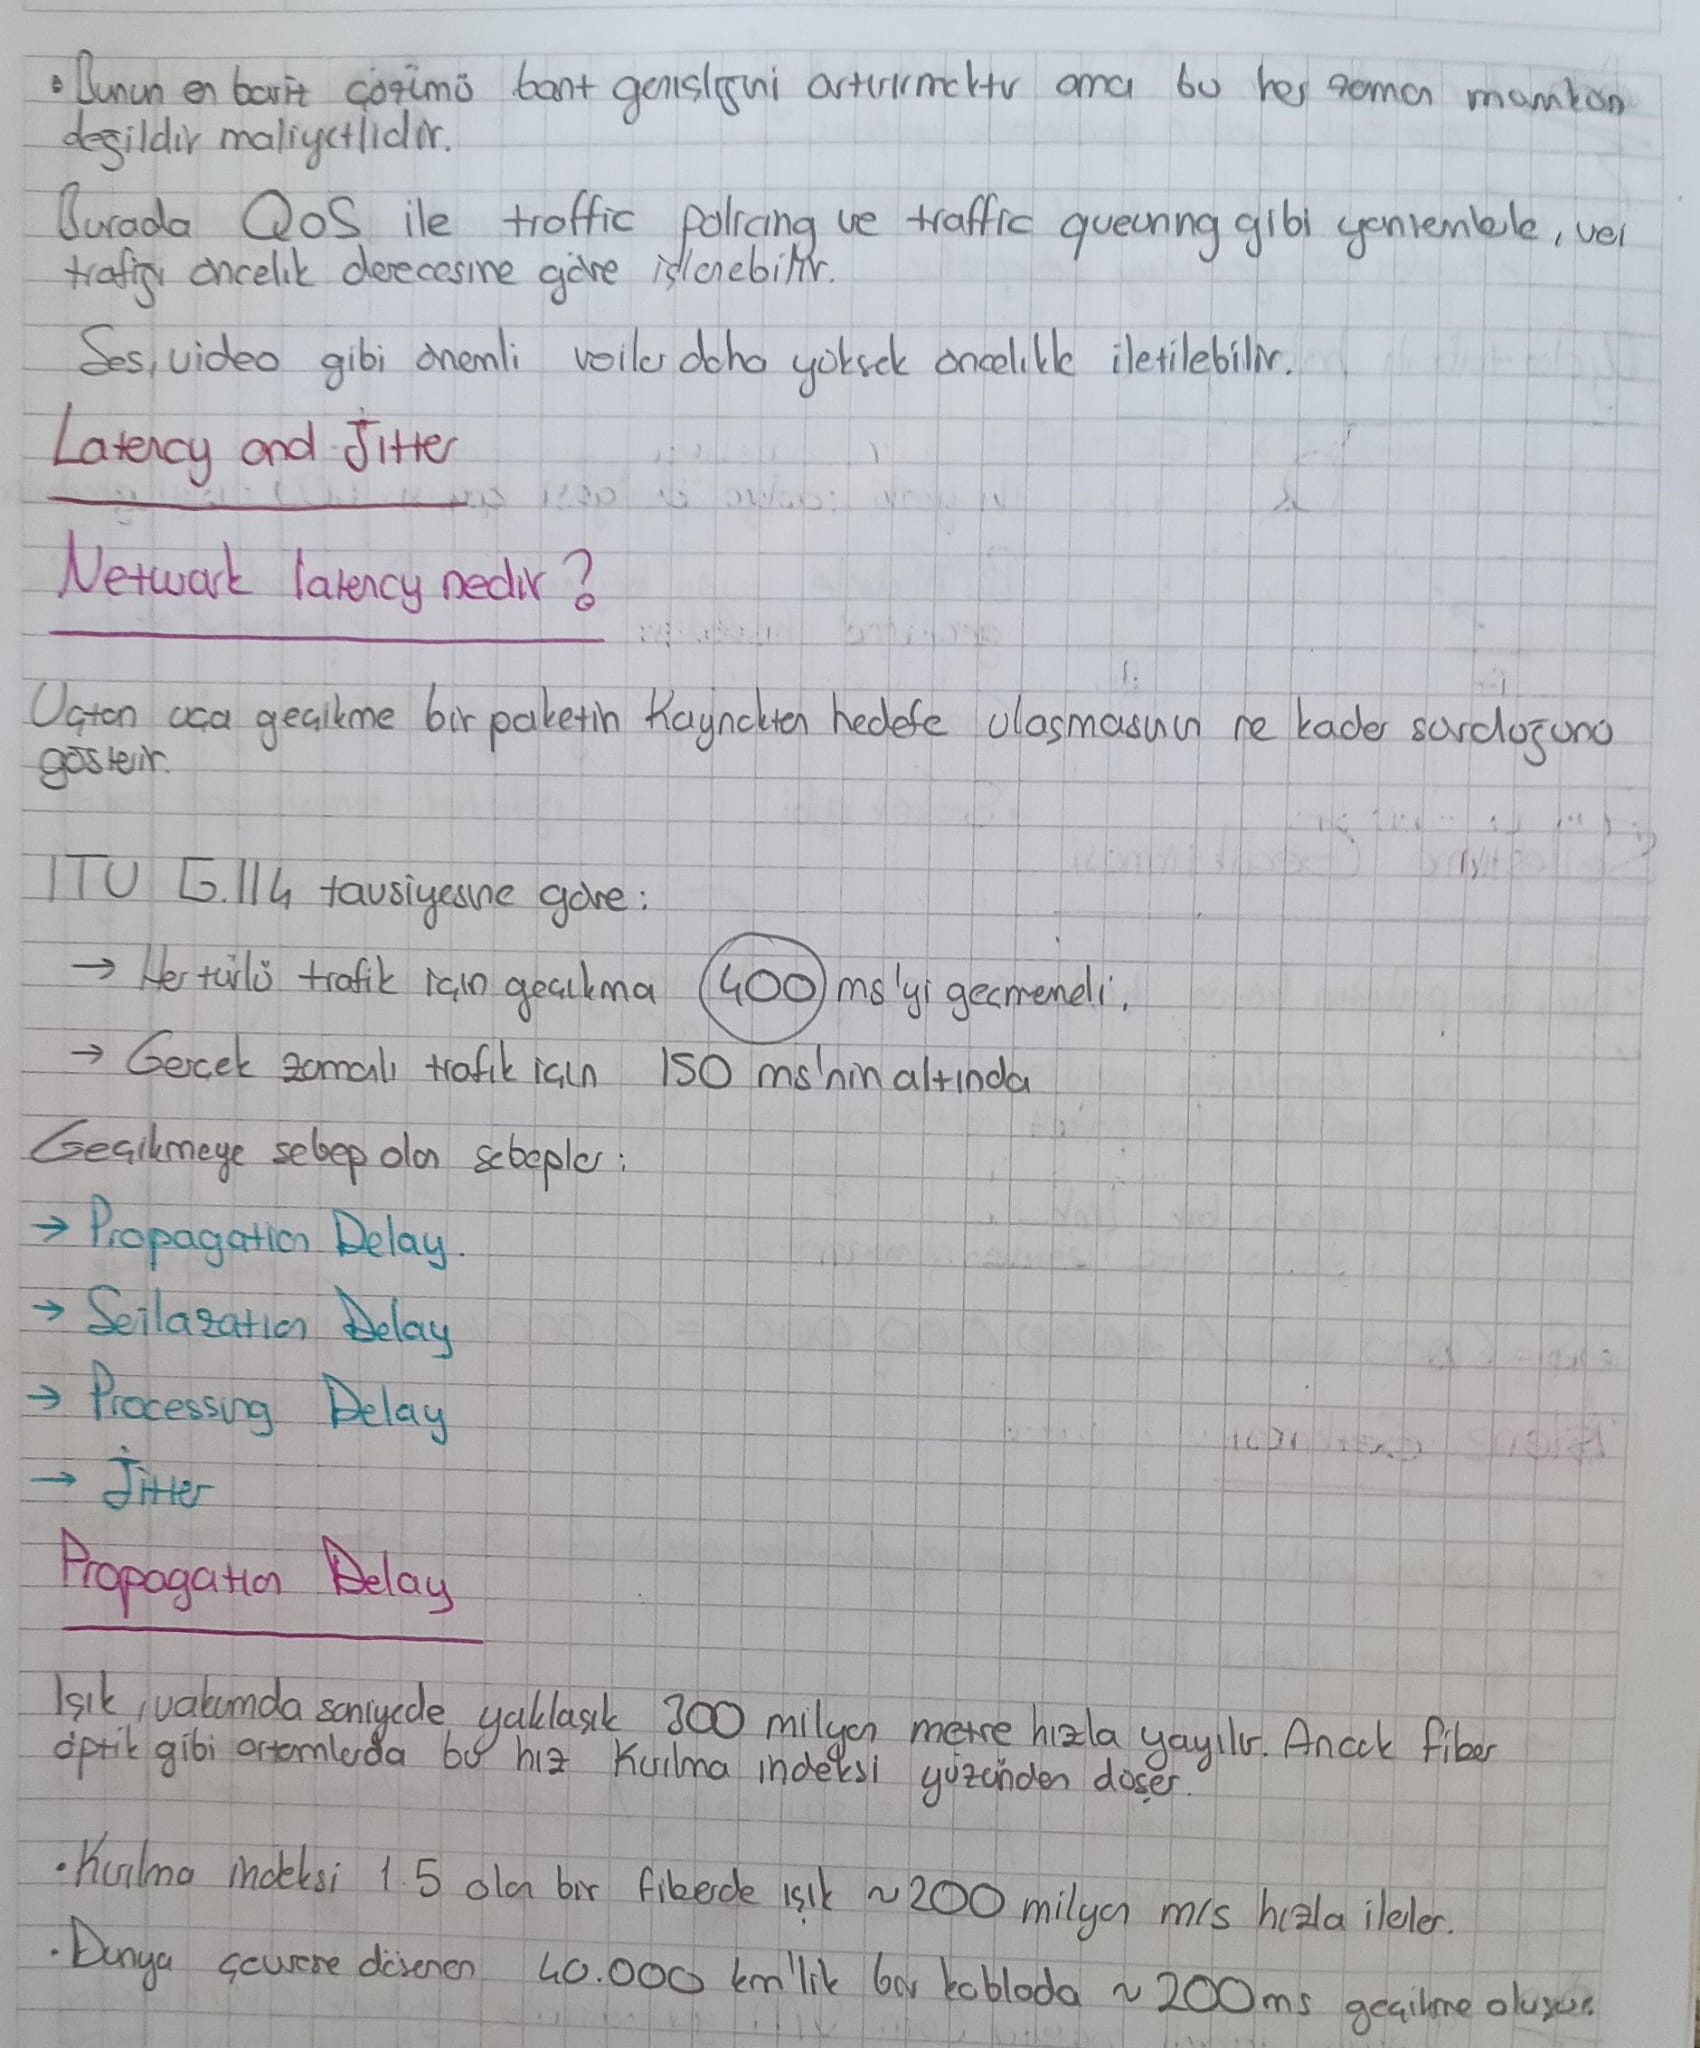 • Bunun en basit çözümü bant genişliğini artırmaktır ama bu her zaman mümkün
değildir maliyetlidir.
Burada QoS ile traffic policing ve traffic queuning gibi yöntemlerle, veri
trafiği öncelik derecesine göre işlenebilir.
Ses, video gibi önemli veriler daha yüksek öncelikle iletilebilir.
Latency and Jitter
Network latency nedir?
Uçtan uca gecikme bir paketin kaynaktan hedefe ulaşmasının ne kadar sürdüğünü
gösterir.
ITU G.114 tavsiyesine göre:
→ Her türlü trafik için gecikma 400 ms'yi geçmemeli.
→ Gerçek zamalı trafik için 150 ms'nin altında
Gecikmeye sebep olan sebepler:
→ Propagation Delay.
→ Serilazation Delay
→ Processing Delay
→ Jitter
Propagation Delay
Işık, vakumda saniyede yaklaşık 300 milyon metre hızla yayılır. Ancak fiber
optik gibi ortamlarda bu hız kırılma indeksi yüzünden düşer.
• Kırılma indeksi 1.5 olan bir fiberde ışık ~200 milyon m/s hızla ilerler.
• Dünya çevresine döşenen 40.000 km'lik bir kabloda ~200ms gecikme oluşur.